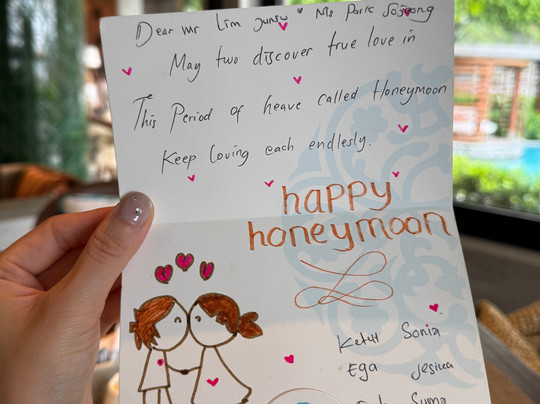 Dear Mr Lim Junsu & Ms Park Sojeong
May two discover true love in
This Period of heave called Honeymoon
Keep loving each endlesly.
happy
honeymoon
Ketut Sonia
Ega Jesika
Suma